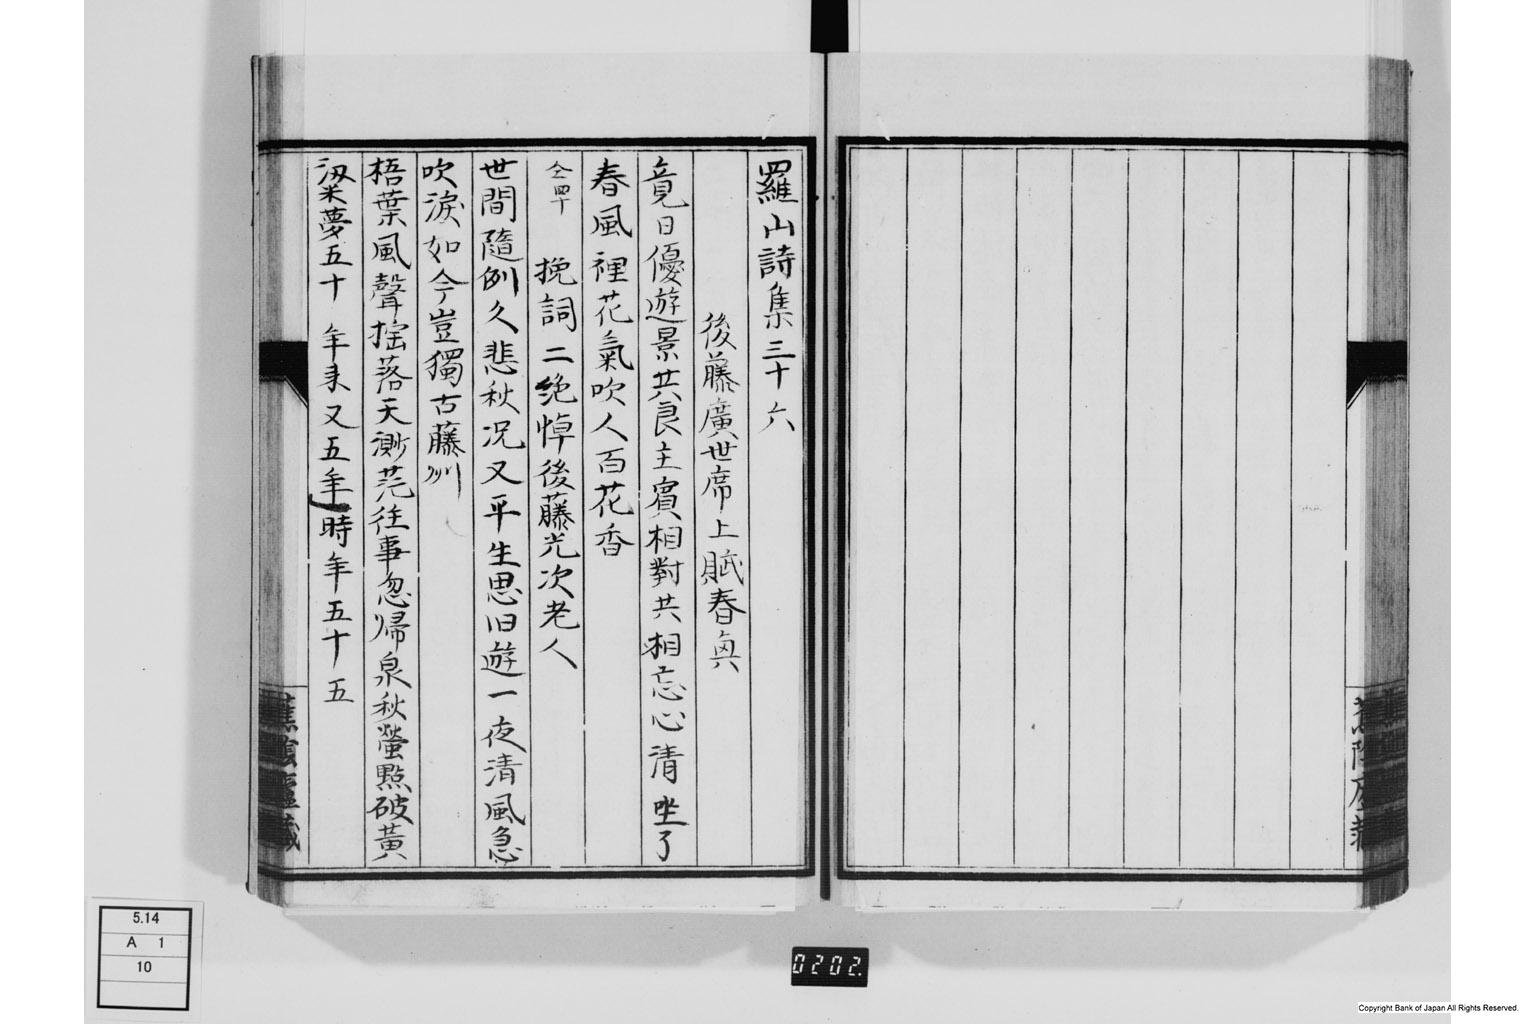 羅山詩集三十六
後藤廣世席上賦春興
竟日優遊景共良主賓相對共相忘心清坐了
春風裡花氣吹人百花香
仝四十 挽詞二絶悼後藤光次老人
世間隨例久悲秋况又平生思旧遊一夜清風急
吹淚如今豈獨古藤州
梧葉風聲搖落天渺茫往事忽帰泉秋螢點破黃
粱夢五十年来又五年時年五十五
蕉陰廬藏
5.14
A 1
10
0202.
Copyright Bank of Japan All Rights Reserved.